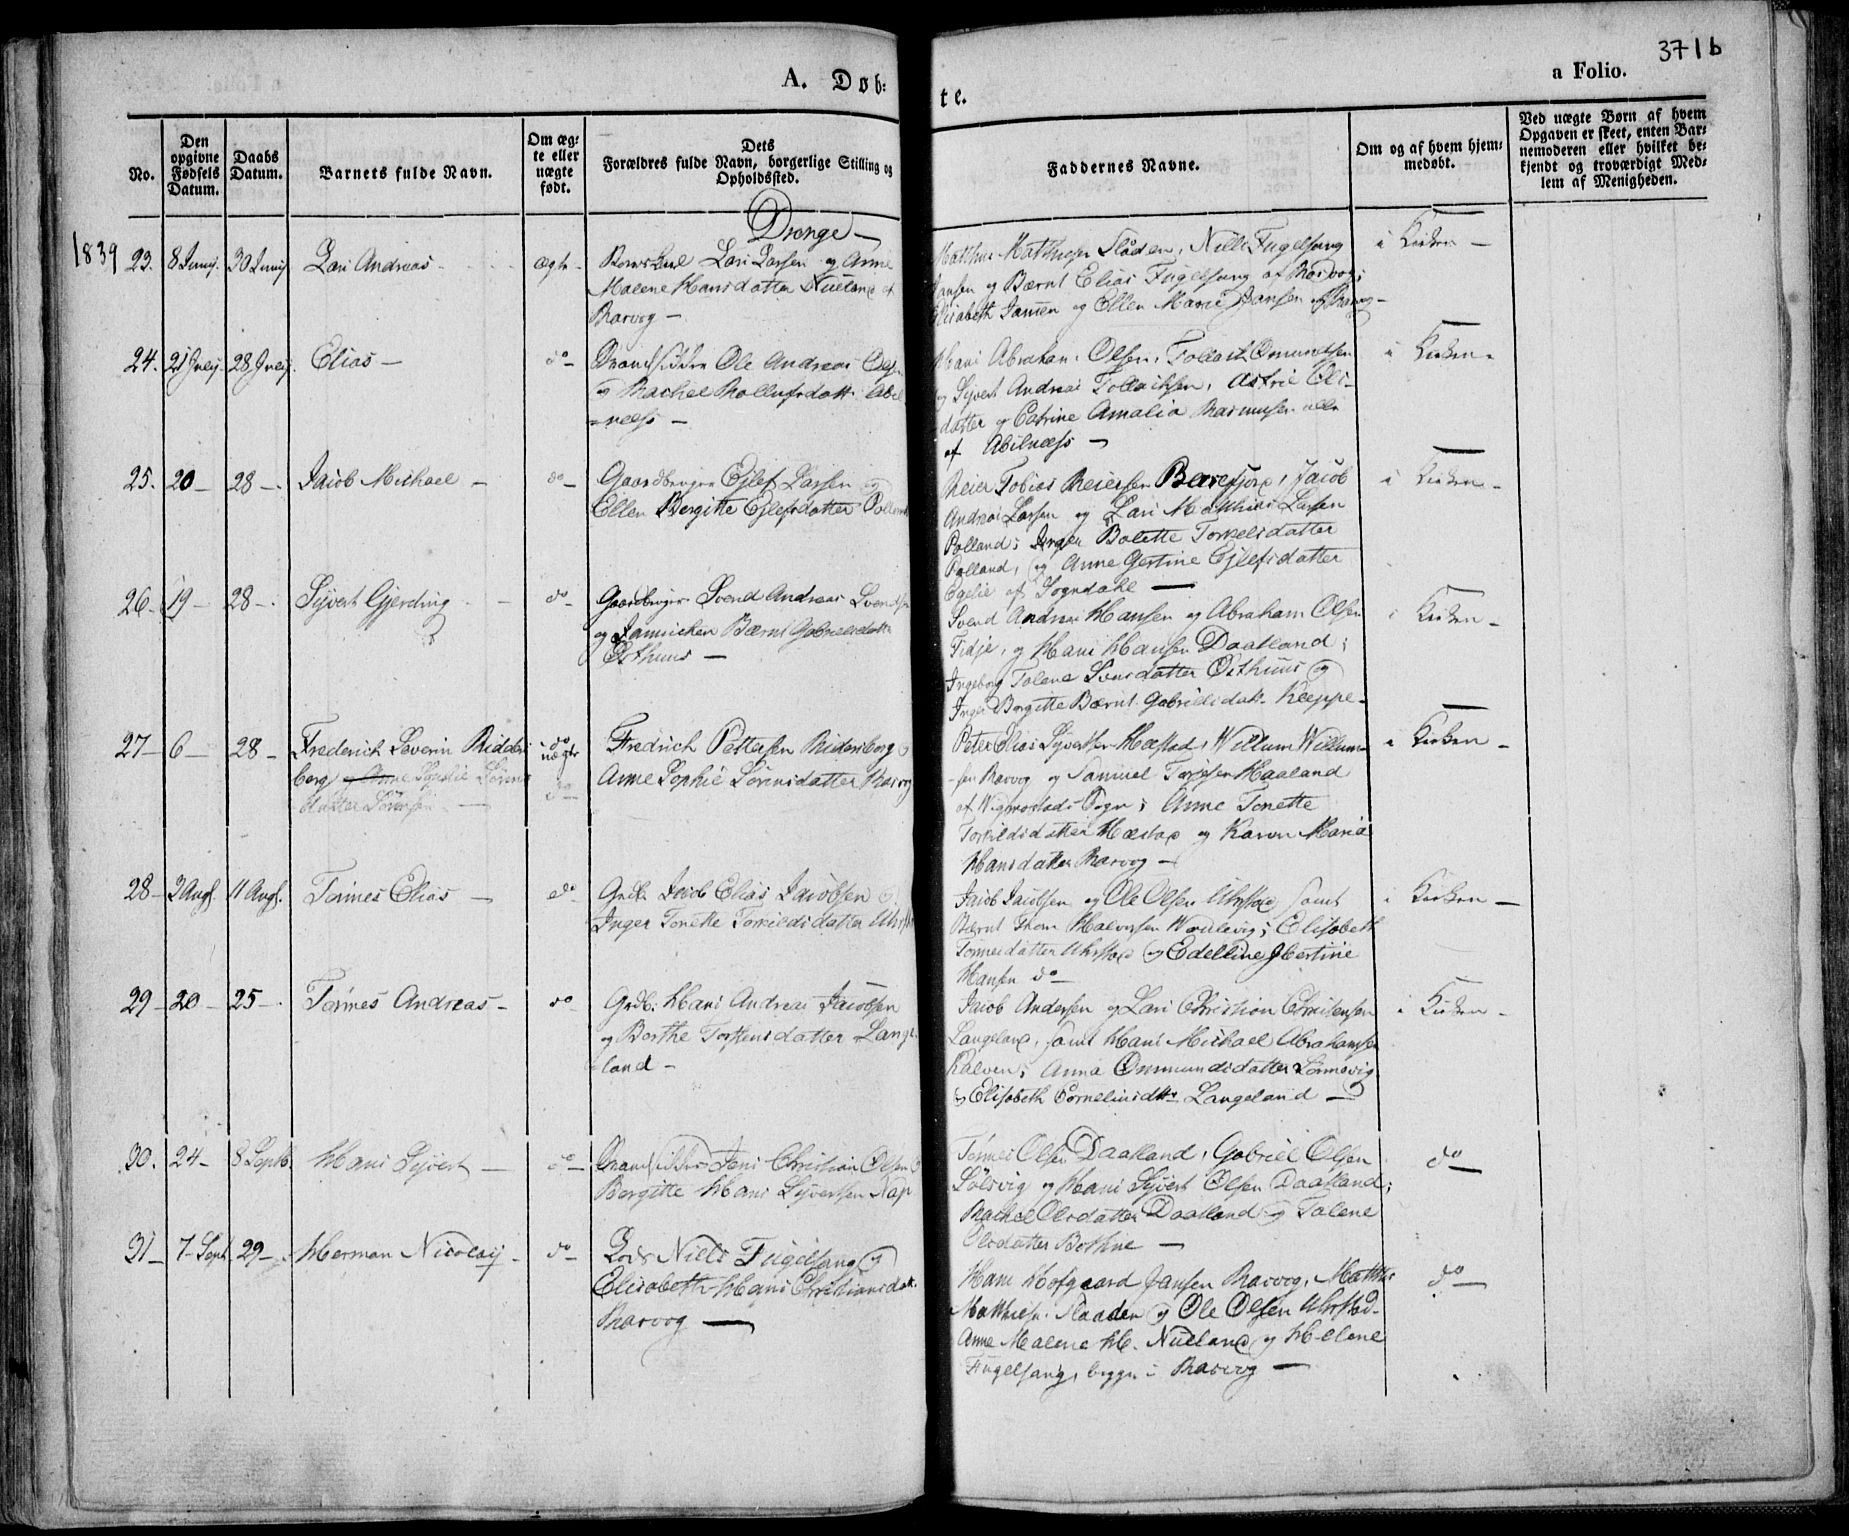 371b
A. Døb=
te.
a Folio.
No.
Den opgivne Fødsels Datum.
Daabs Datum.
Barnets fulde Navn.
Om æg=
te eller
uægte
født.
Dets
Forældres fulde Navn, borgerlige Stilling og
Opholdssted.
Faddernes Navne.
Om og af hvem hjem=
medøbt.
Ved uægte Børn af hvem
Opgaven er skeet, enten Bar=
nemoderen eller hvilket be=
kjendt og troværdigt Med=
lem af Menigheden.
Drenge —
1839
23. 8 Junij. 30 Junij Lars Andreas ægte Lars Larsen og Anne
Malene Hansdatter Nueland af
Rasvog —
Matthis Matthisen Flåden, Niels Fugelsang
Jansen og Bærnt Elias Fugelsang af Rasvog;
Elisabeth Jansen og Ellen Marie Jansen af Rasvog —
i Kirken —
24. 21 Julij. 28 Julij. Elias — do — Ole Andreas
og Rachel Rollufsdatt. Abel
=næss —
Hans Abraham Olsen, Tollack Omundsen
og Sijvert Andreas Tollachsen, Astrie Ols=
datter og Catrine Amalia Rasmusen alle
af Abelnæss —
i Kirken —
25. 20 — 28 —. Jacob Michael — do — Gaardbruger Ejlef Larsen og
Ellen Bergitte Ejlefsdatter
Reier Tobias Reiersen Barefjord, Jacob
Andreas Larsen og Lars Matthias Larsen
Rolland; Inger Bolette Torkelsdatter
Rolland, og Anne Gertine Ejlefsdatter
Egelie af Sogndahl —
i Kirken —
26 — 19 — 28 —. Sijvert Gjerding — do — Gaardbruger Svend Andreas Svendsen
og Jannicken Bærnt Gabrielsdatter
Østhuus —
Svend Andreas Hansen og Abraham Olsen
Fidje, og Hans Hansen Daatland;
Ingeborg Tolene Svensdatter Østhuus og
Inger Bergitte Bærnt Gabrielsdatt.
i Kirken —
27 — 6 — 28 — Frederich Severin Ridders
berg Anne Sophie Sørens
datter
do
uægte
do
Fredrich Pettersen Ridersberg og
Anne Sophie Sørensdatter Rasvog
Peter Elias Sijvertsen Hæstad, Willum Willum=
sen Rasvog og Samuel Haaland
af Wigmostads Sogn; Anne Tonette
Torkildsdatter Hæstad og Karen Maria
Hansdatter Rasvog —
i Kirken —
28 — 3 Augs. 11 Augs. Tønnes Elias — do — Grdb. Jacob Elias Jacobsen og
Inger Tonette Torkildsdatter
Jacob Jacobsen og Ole Olsen Uhrstad samt
Bærnt Thom Halvorsen; Elisabeth
Tønnesdatter Uhrstad og Edelline Hertine
Hansen do —
i Kirken —
29 — 20 — 25 —. Tønnes Andreas — do Grdb. Hans Andreas Jacobsen
og Berthe Torstensdatter Lange
=land —
Jacob Andersen og Lars Christian Christensen
Langeland, samt Hans Michael Abrahamsen
Kalven; Anna Ommundsdatter
og Elisabeth Cornelius dttr Langeland —
i Kirken —
30. 24 — 8 Septb. Hans Sijvert — do — Jens Christian Olsen og
Bergitte Hans Sijvertsen
Tønnes Olsen Daatland, Gabriel Olsen
Sølsvig og Hans Sijvert Olsen Daatland;
Rachel Olsdatter Daatland og Tolene
Olsdatter Bothne —
do —
31 — 7 Sept. 29 —. Herman Nicolaij — do — Lods Niels Fugelsang og
Elisabeth Hans Christiansdatt.
Rasvog —
Hans Hofgaard Jansen Rasvog, Matthis
Matthisen Flaaden og Ole Olsen Uhrstad.
Anne Malene H. Nueland og Helene
Fugelsang, begge i Rasvog —
do —